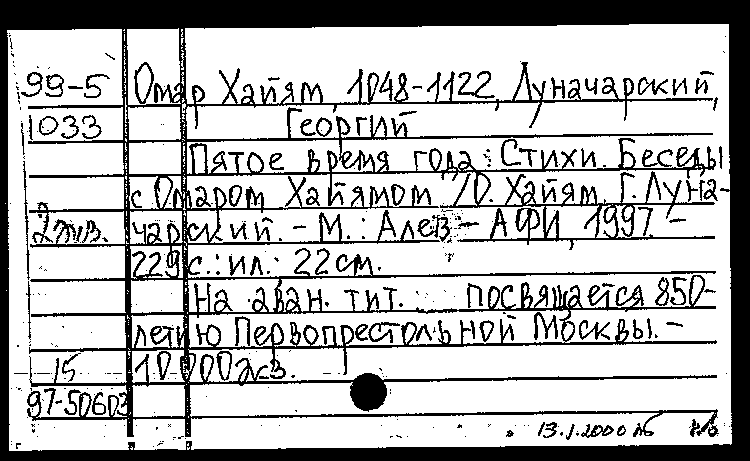 99-5 Омар Хайям, 1048-1122, Луначарский,
1033 Георгий
Пятое время года: Стихи. Беседы
с Омаром Хайямом / О. Хайям, Г. Луна-
2 экз. чарский. - М.: Алев - АФИ, 1997. -
229 с.: ил.; 22 см.
На аван. тит. посвящается 850-
летию Первопрестольной Москвы. -
15 10 000 экз.
97-50603
13.1.2000